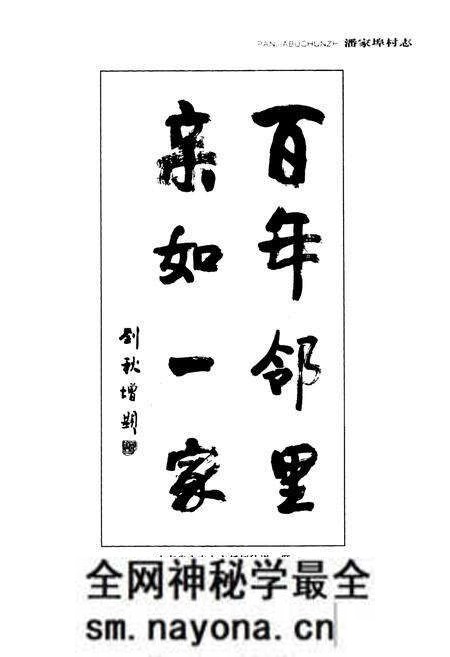 PANJIABUCHUNZHI 潘家埠村志
百年邻里
亲如一家
刘秋增题
全网神秘学最全
sm.nayona.cn